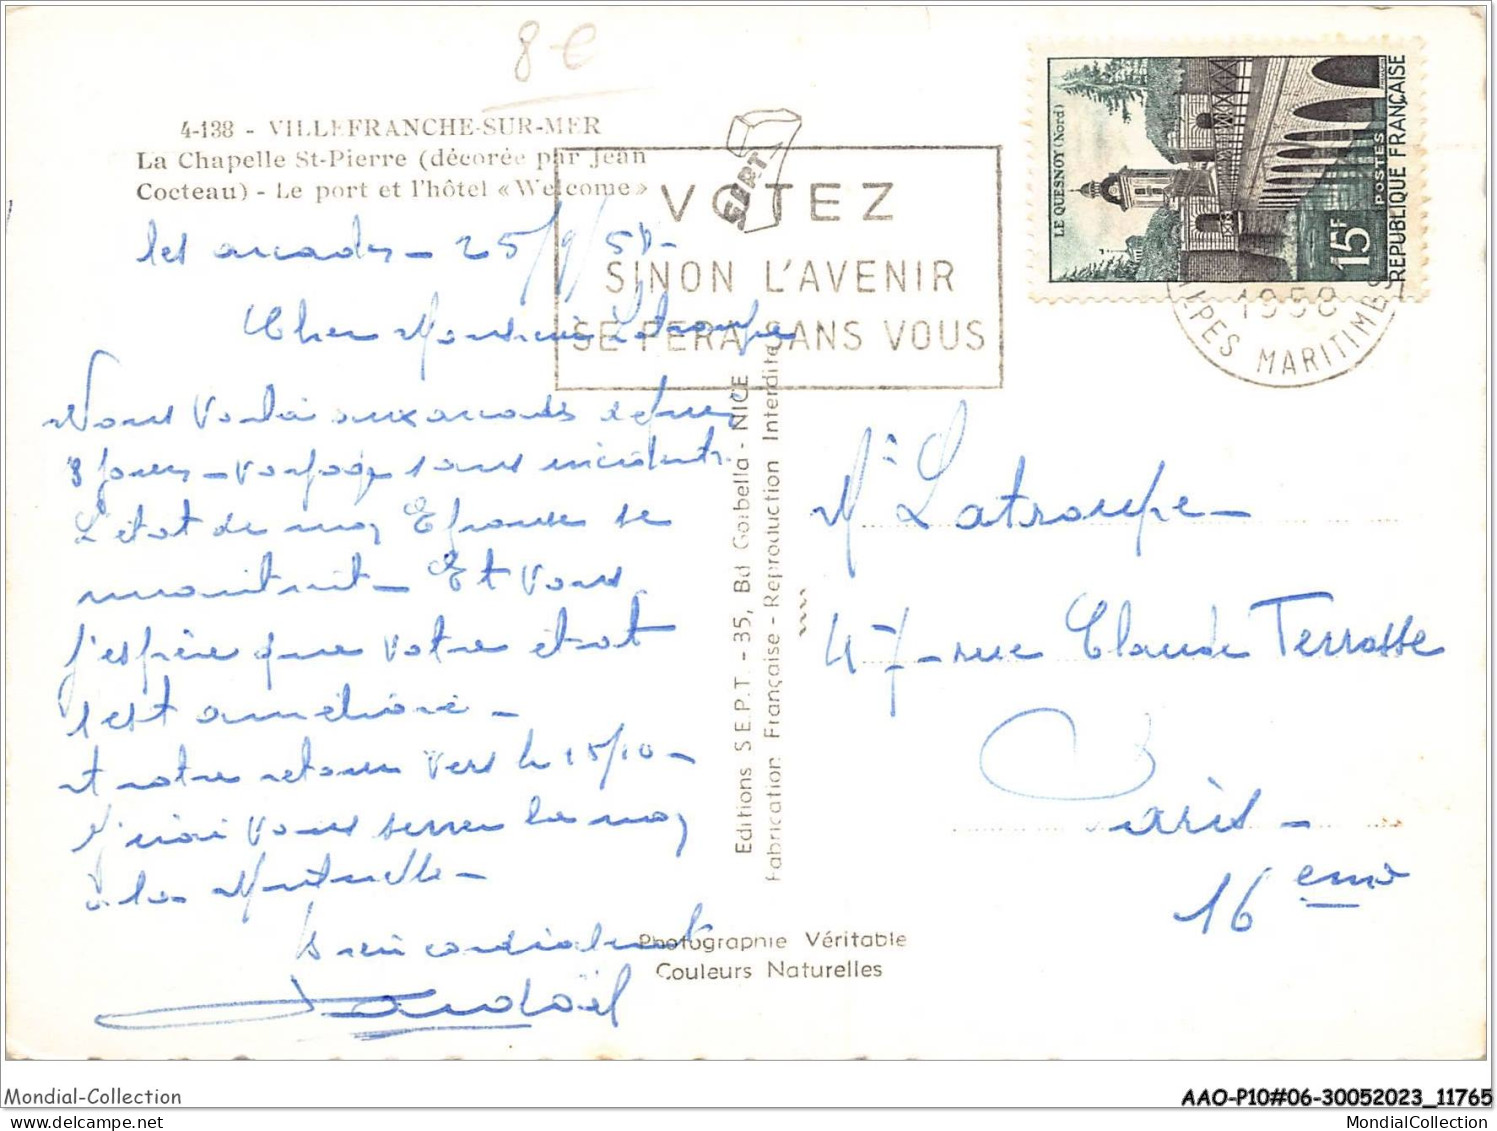 8 €
4-138 - VILLEFRANCHE-SUR-MER
La Chapelle St-Pierre (décorée par Jean
Cocteau) - Le port et l'hôtel «Welcome»
les arcades - 25/9/58 -
Cher Monsieur Latroupe
Nous voilà aux arcades depuis
8 jours - voyage sans incidents.
L'état de mon Epouse se
maintient - Et vous
j'espère que votre état
s'est amélioré -
et notre retour vers le 15/10 -
J'irai vous serrer la main
à la Mutuelle -
bien cordialement
VOTEZ
SINON L'AVENIR
SE FERA SANS VOUS
LE QUESNOY (Nord)
15F
POSTES
RÉPUBLIQUE FRANÇAISE
1958
ALPES MARITIMES
Editions S.E.P.T. - 35, Bd Gorbella - NICE
Fabrication Française - Reproduction Interdite
Mr Latroupe -
47 - rue Claude Terrasse
Paris -
16 eme
Photographie Véritable
Couleurs Naturelles
Mondial-Collection
AAO-P10#06-30052023_11765
MondialCollection